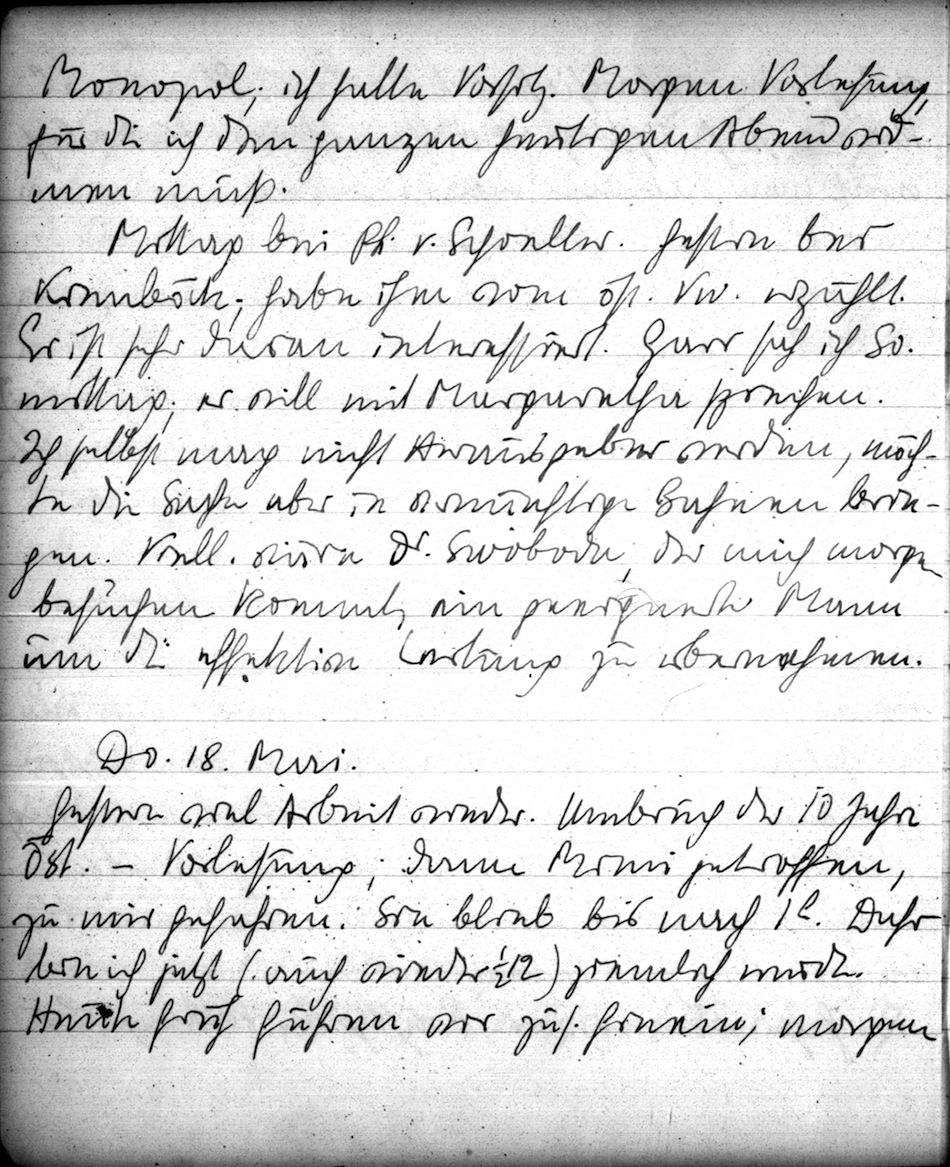 Monopol; ich hatte Vorsitz. Morgen Vorlesung,
für die ich den ganzen heutigen Abend wid-
men muß.
Mittag bei Ph. v. Schoeller. Gestern bei
Kienböck; habe ihm vom öst. Vw. erzählt.
Er ist sehr daran interessiert. Garr sah ich So.
mittag; er will mit Margaretha sprechen.
Ich selbst mag nicht Herausgeber werden, möch-
te die Sache aber in vernünftige Bahnen brin-
gen. Viell. wäre Dr. Swoboda, der mich morgen
besuchen kommt, ein geeigneter Mann
um die effektive Leitung zu übernehmen.
Do. 18. Mai.
Gestern viel Arbeit wieder. Umbruch der 10 Jahre
Öst. – Vorlesung; dann getroffen,
zu mir gefahren. Sie blieb bis nach 1h. Daher
bin ich jetzt (auch wieder ½12) ziemlich müde.
Heute früh fuhren wir zus. herein; morgen